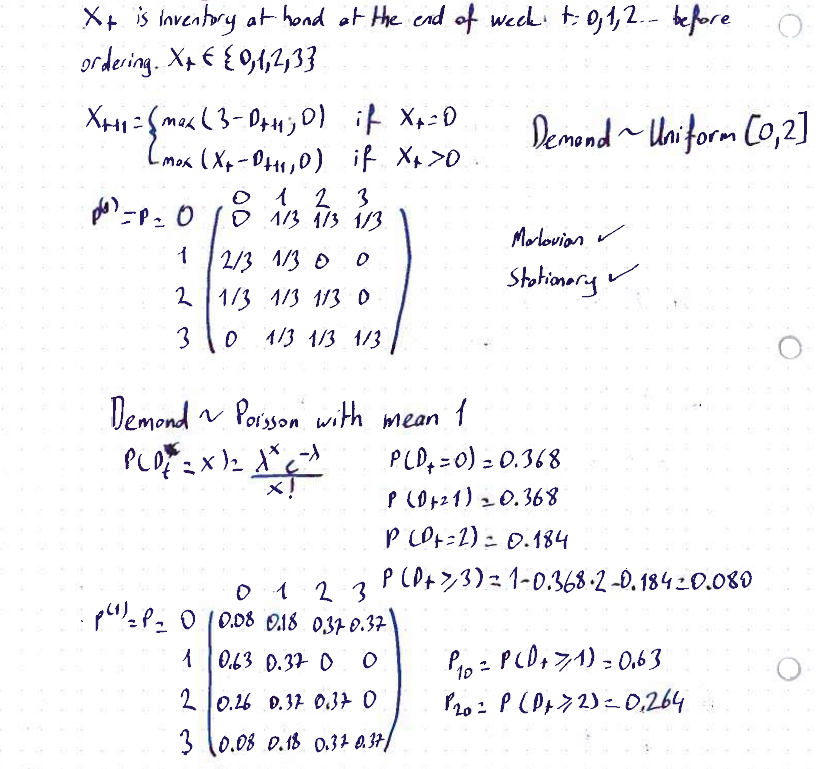 Xt is inventory at hand at the end of week t=0,1,2... before
ordering. Xt ∈ {0,1,2,3}
Xt+1 = { max(3-Dt+1, 0) if Xt=0
max(Xt-Dt+1, 0) if Xt>0
Demand ~ Uniform [0,2]
0 1 2 3
p(1) = P = 0 0 1/3 1/3 1/3
1 2/3 1/3 0 0
2 1/3 1/3 1/3 0
3 0 1/3 1/3 1/3
Markovian ✓
Stationary ✓
Demand ~ Poisson with mean 1
P(Dt = x) = λ^x e^-λ / x!
P(Dt=0) = 0.368
P(Dt=1) = 0.368
P(Dt=2) = 0.184
P(Dt≥3) = 1-0.368·2-0.184=0.080
0 1 2 3
p(1) = P = 0 0.08 0.18 0.37 0.37
1 0.63 0.37 0 0
2 0.26 0.37 0.37 0
3 0.08 0.18 0.37 0.37
P10 = P(Dt≥1) = 0,63
P20 = P(Dt≥2) = 0,264